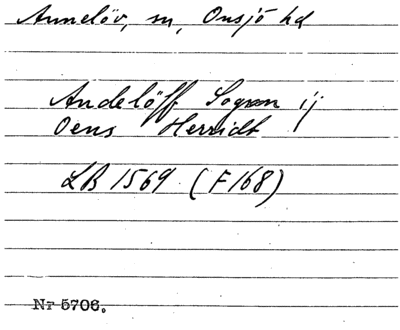 Annelöv, sn, Onsjö hd
Andelöff Sognn ij
Oens Herridt
LB 1569 (F168)
Nr 5706.